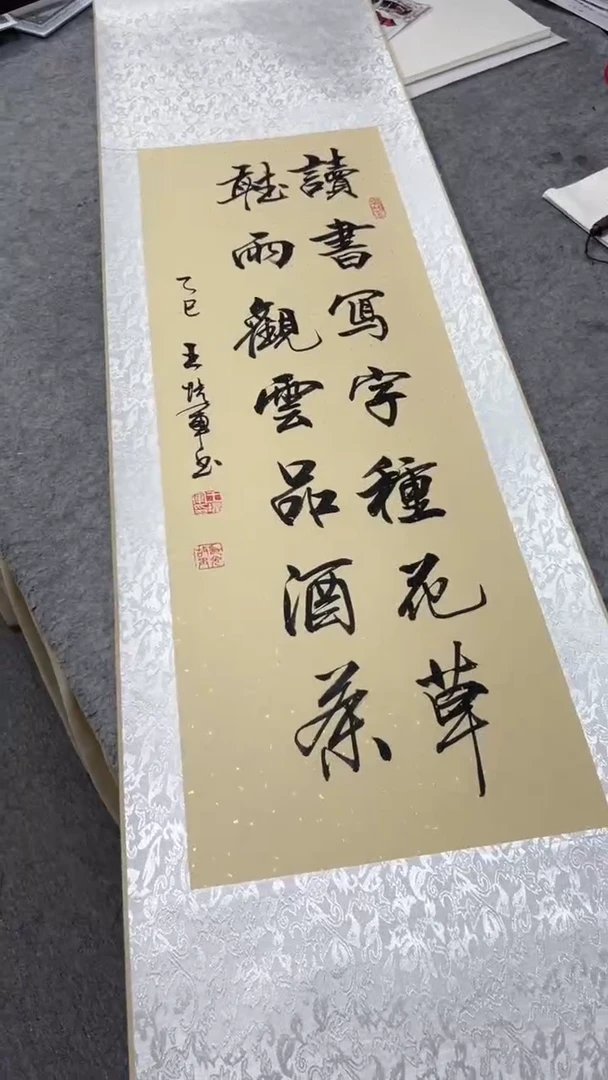 讀書寫字種花草
聽雨觀雲品酒茶
乙巳 王 軍書